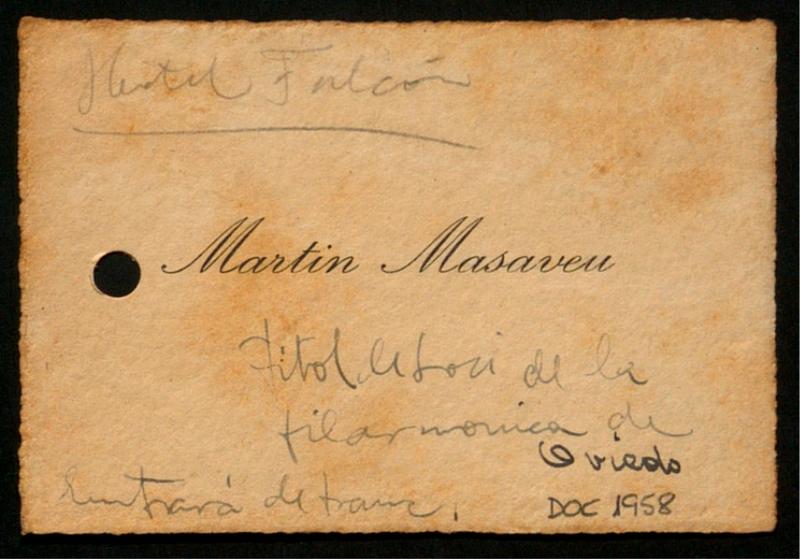 Hotel Falcón
Martin Masaveu
Titol de soci de la
filarmonica de
Oviedo
Entrará de franc.
DOC 1958